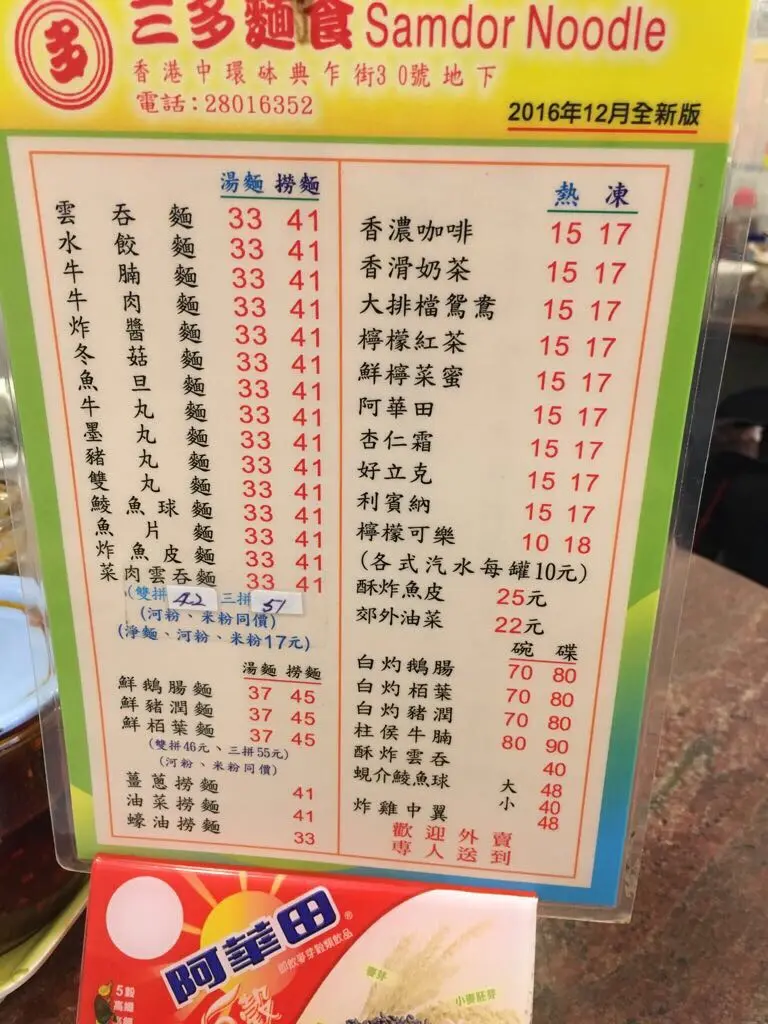 多
三多麵食 Samdor Noodle
香港中環砵典乍街30號地下
電話:28016352
2016年12月全新版
湯麵 撈麵
雲吞麵 33 41
水餃麵 33 41
牛腩麵 33 41
牛肉麵 33 41
炸醬麵 33 41
冬菇麵 33 41
魚旦麵 33 41
牛丸麵 33 41
墨丸麵 33 41
豬丸麵 33 41
雙丸麵 33 41
鯪魚球麵 33 41
魚片麵 33 41
炸魚皮麵 33 41
菜肉雲吞麵 33 41
(雙拼 42 三拼 51
(河粉、米粉同價)
(淨麵、河粉、米粉17元)
湯麵 撈麵
鮮鵝腸麵 37 45
鮮豬潤麵 37 45
鮮栢葉麵 37 45
(雙拼46元、三拼55元)
(河粉、米粉同價)
薑蔥撈麵 41
油菜撈麵 41
蠔油撈麵 33
熱 凍
香濃咖啡 15 17
香滑奶茶 15 17
大排檔鴛鴦 15 17
檸檬紅茶 15 17
鮮檸菜蜜 15 17
阿華田 15 17
杏仁霜 15 17
好立克 15 17
利賓納 15 17
檸檬可樂 10 18
(各式汽水每罐10元)
酥炸魚皮 25元
郊外油菜 22元
碗 碟
白灼鵝腸 70 80
白灼栢葉 70 80
白灼豬潤 70 80
柱侯牛腩 80 90
酥炸雲吞 40
蜆介鯪魚球 大 48
小 40
炸雞中翼 48
歡迎外賣
專人送到
阿華田®
即飲麥芽穀類飲品
5穀
高纖
麥芽
小麥胚芽